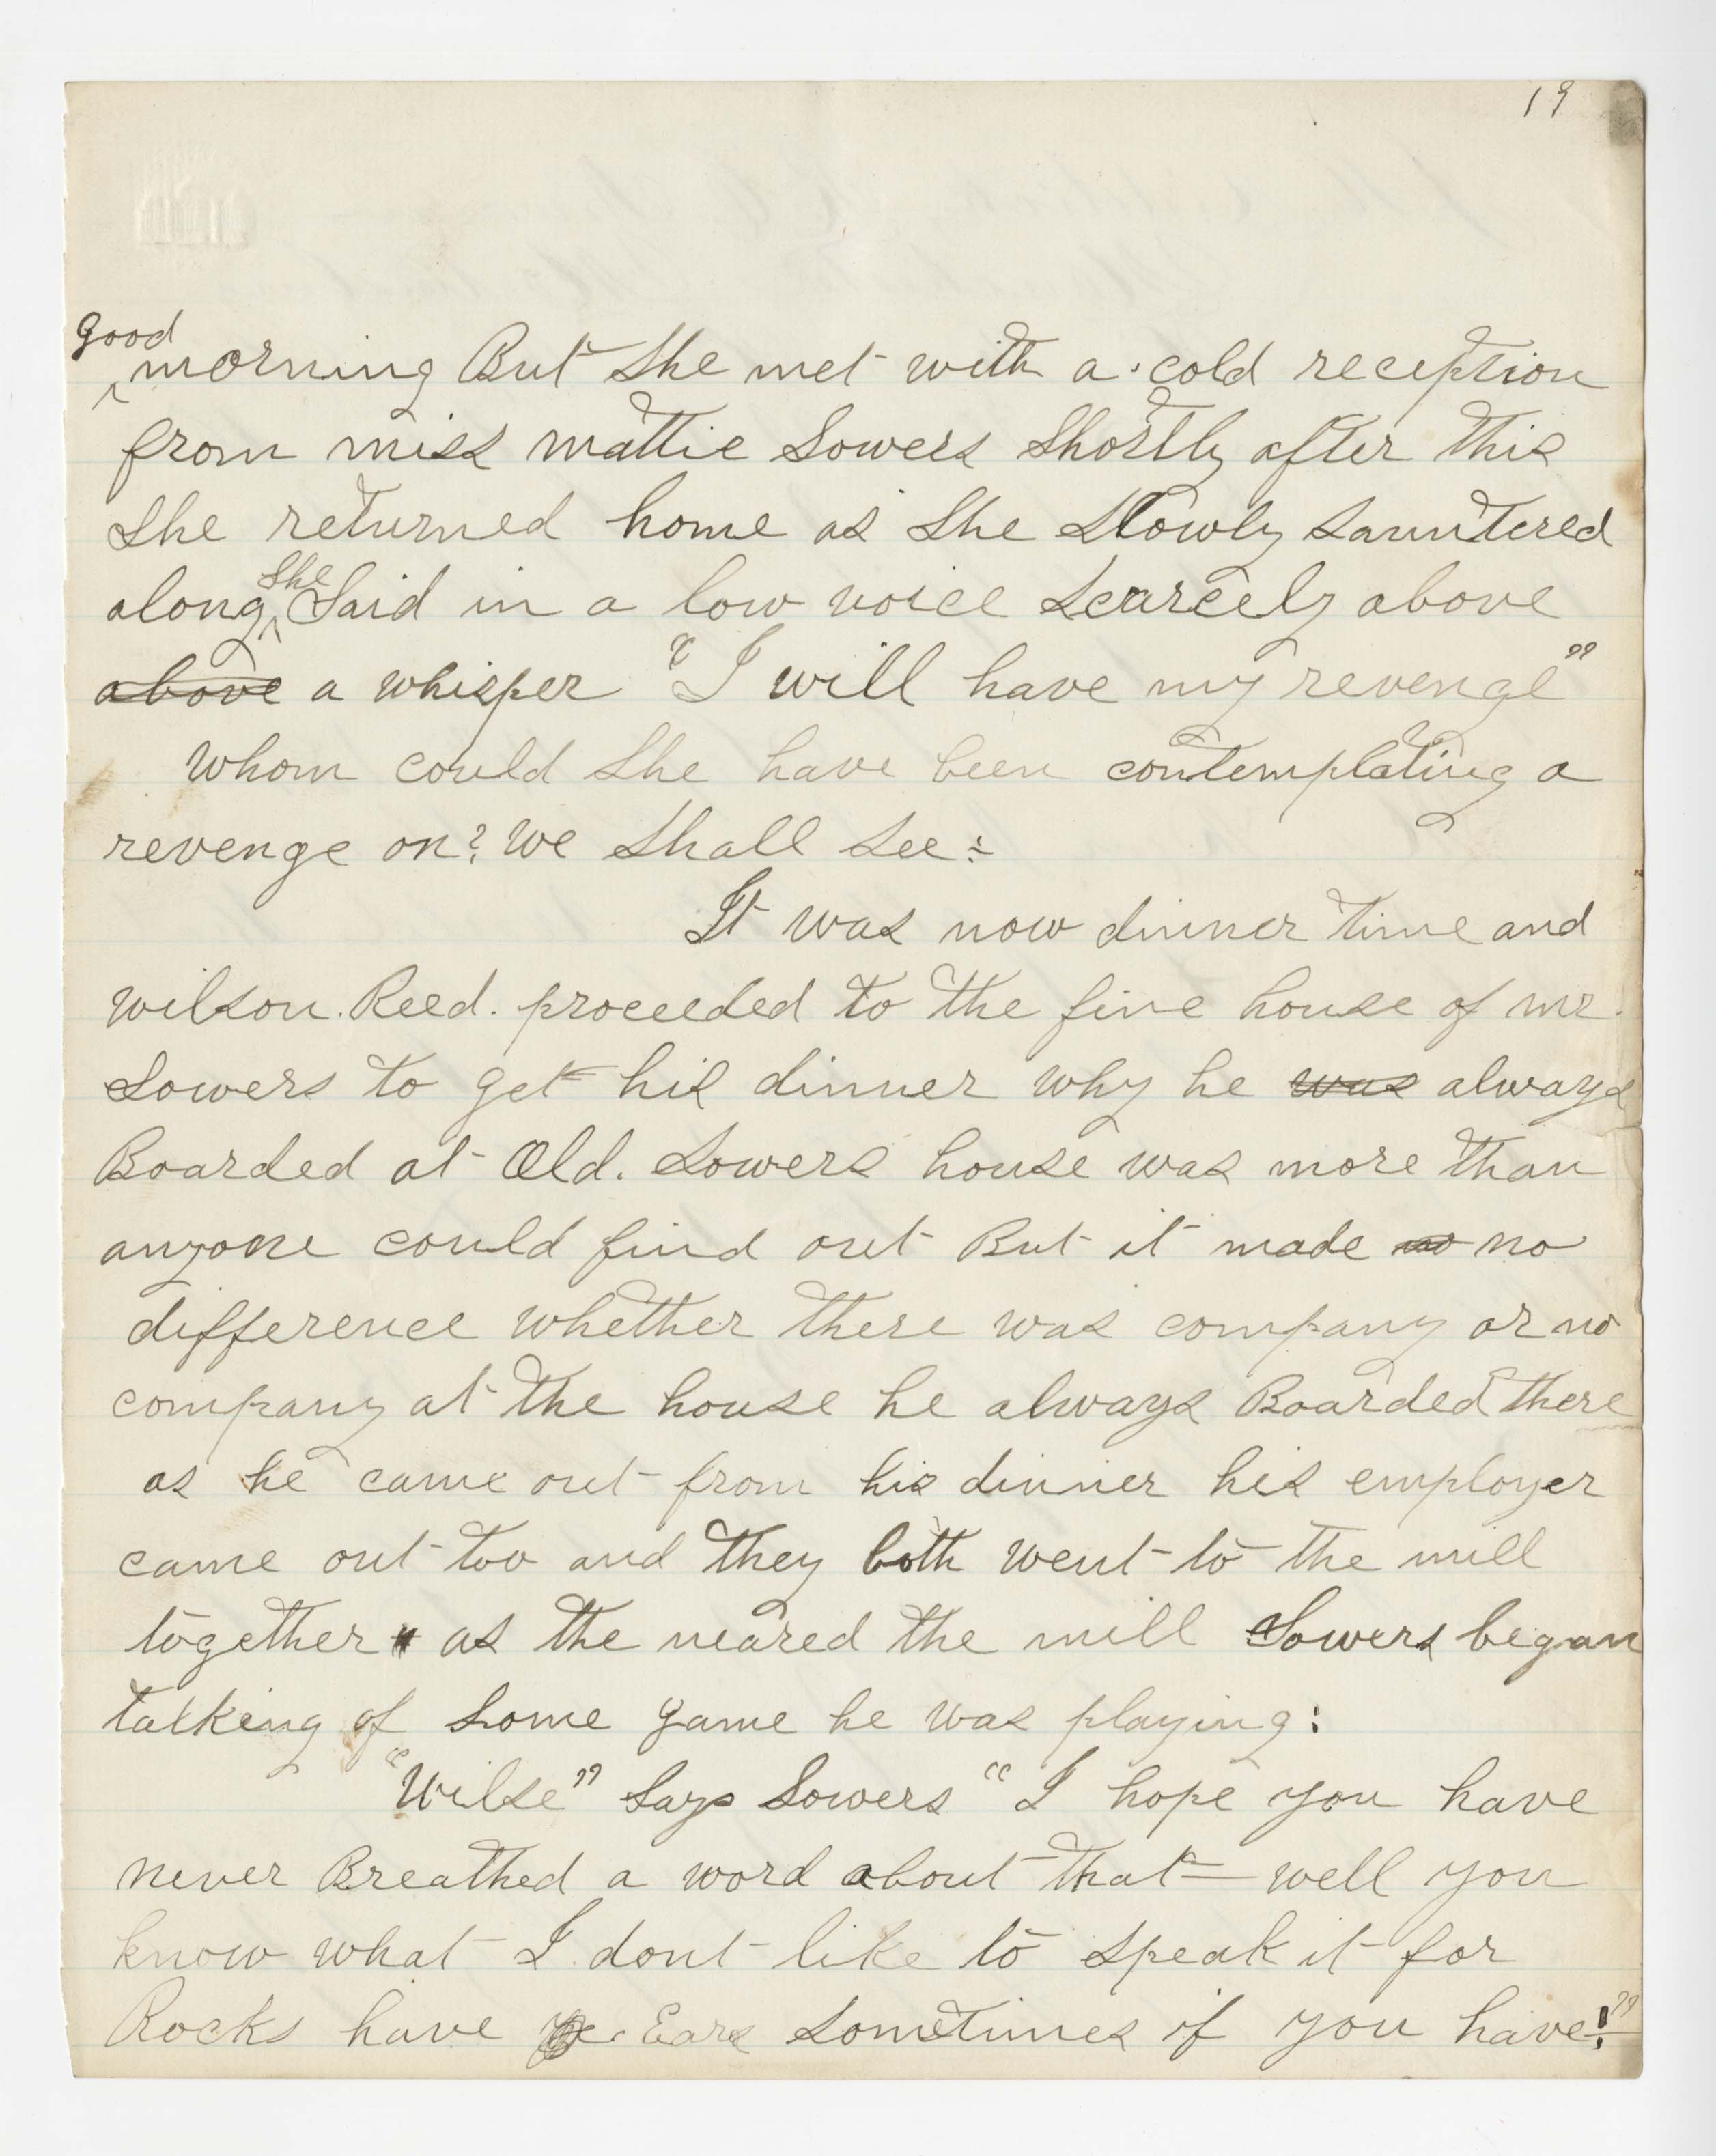 19
good
morning But She met with a cold reception
from miss mattie Sowers Shortly after this
She returned home as She Slowly Sauntered
along She Said in a low voice Scarcely above
above a whisper "I will have my revenge"
whom could She have been contemplating a
revenge on? we Shall See:
It was now dinner time and
wilson. Reed. proceeded to the fine house of mr.
Sowers to get his dinner why he was always
Boarded at Old. Sowers house was more than
anyone could find out But it made no no
difference whether there was company or no
company at the house he always Boarded there
as he came out from his dinner his employer
came out too and they both went to the mill
together as the neared the mill Sowers began
talking of Some game he was playing:
"Wilse" Says Sowers "I hope you have
never Breathed a word about that — well you
know what I dont like to Speak it for
Rocks have Ears Sometimes if you have!"